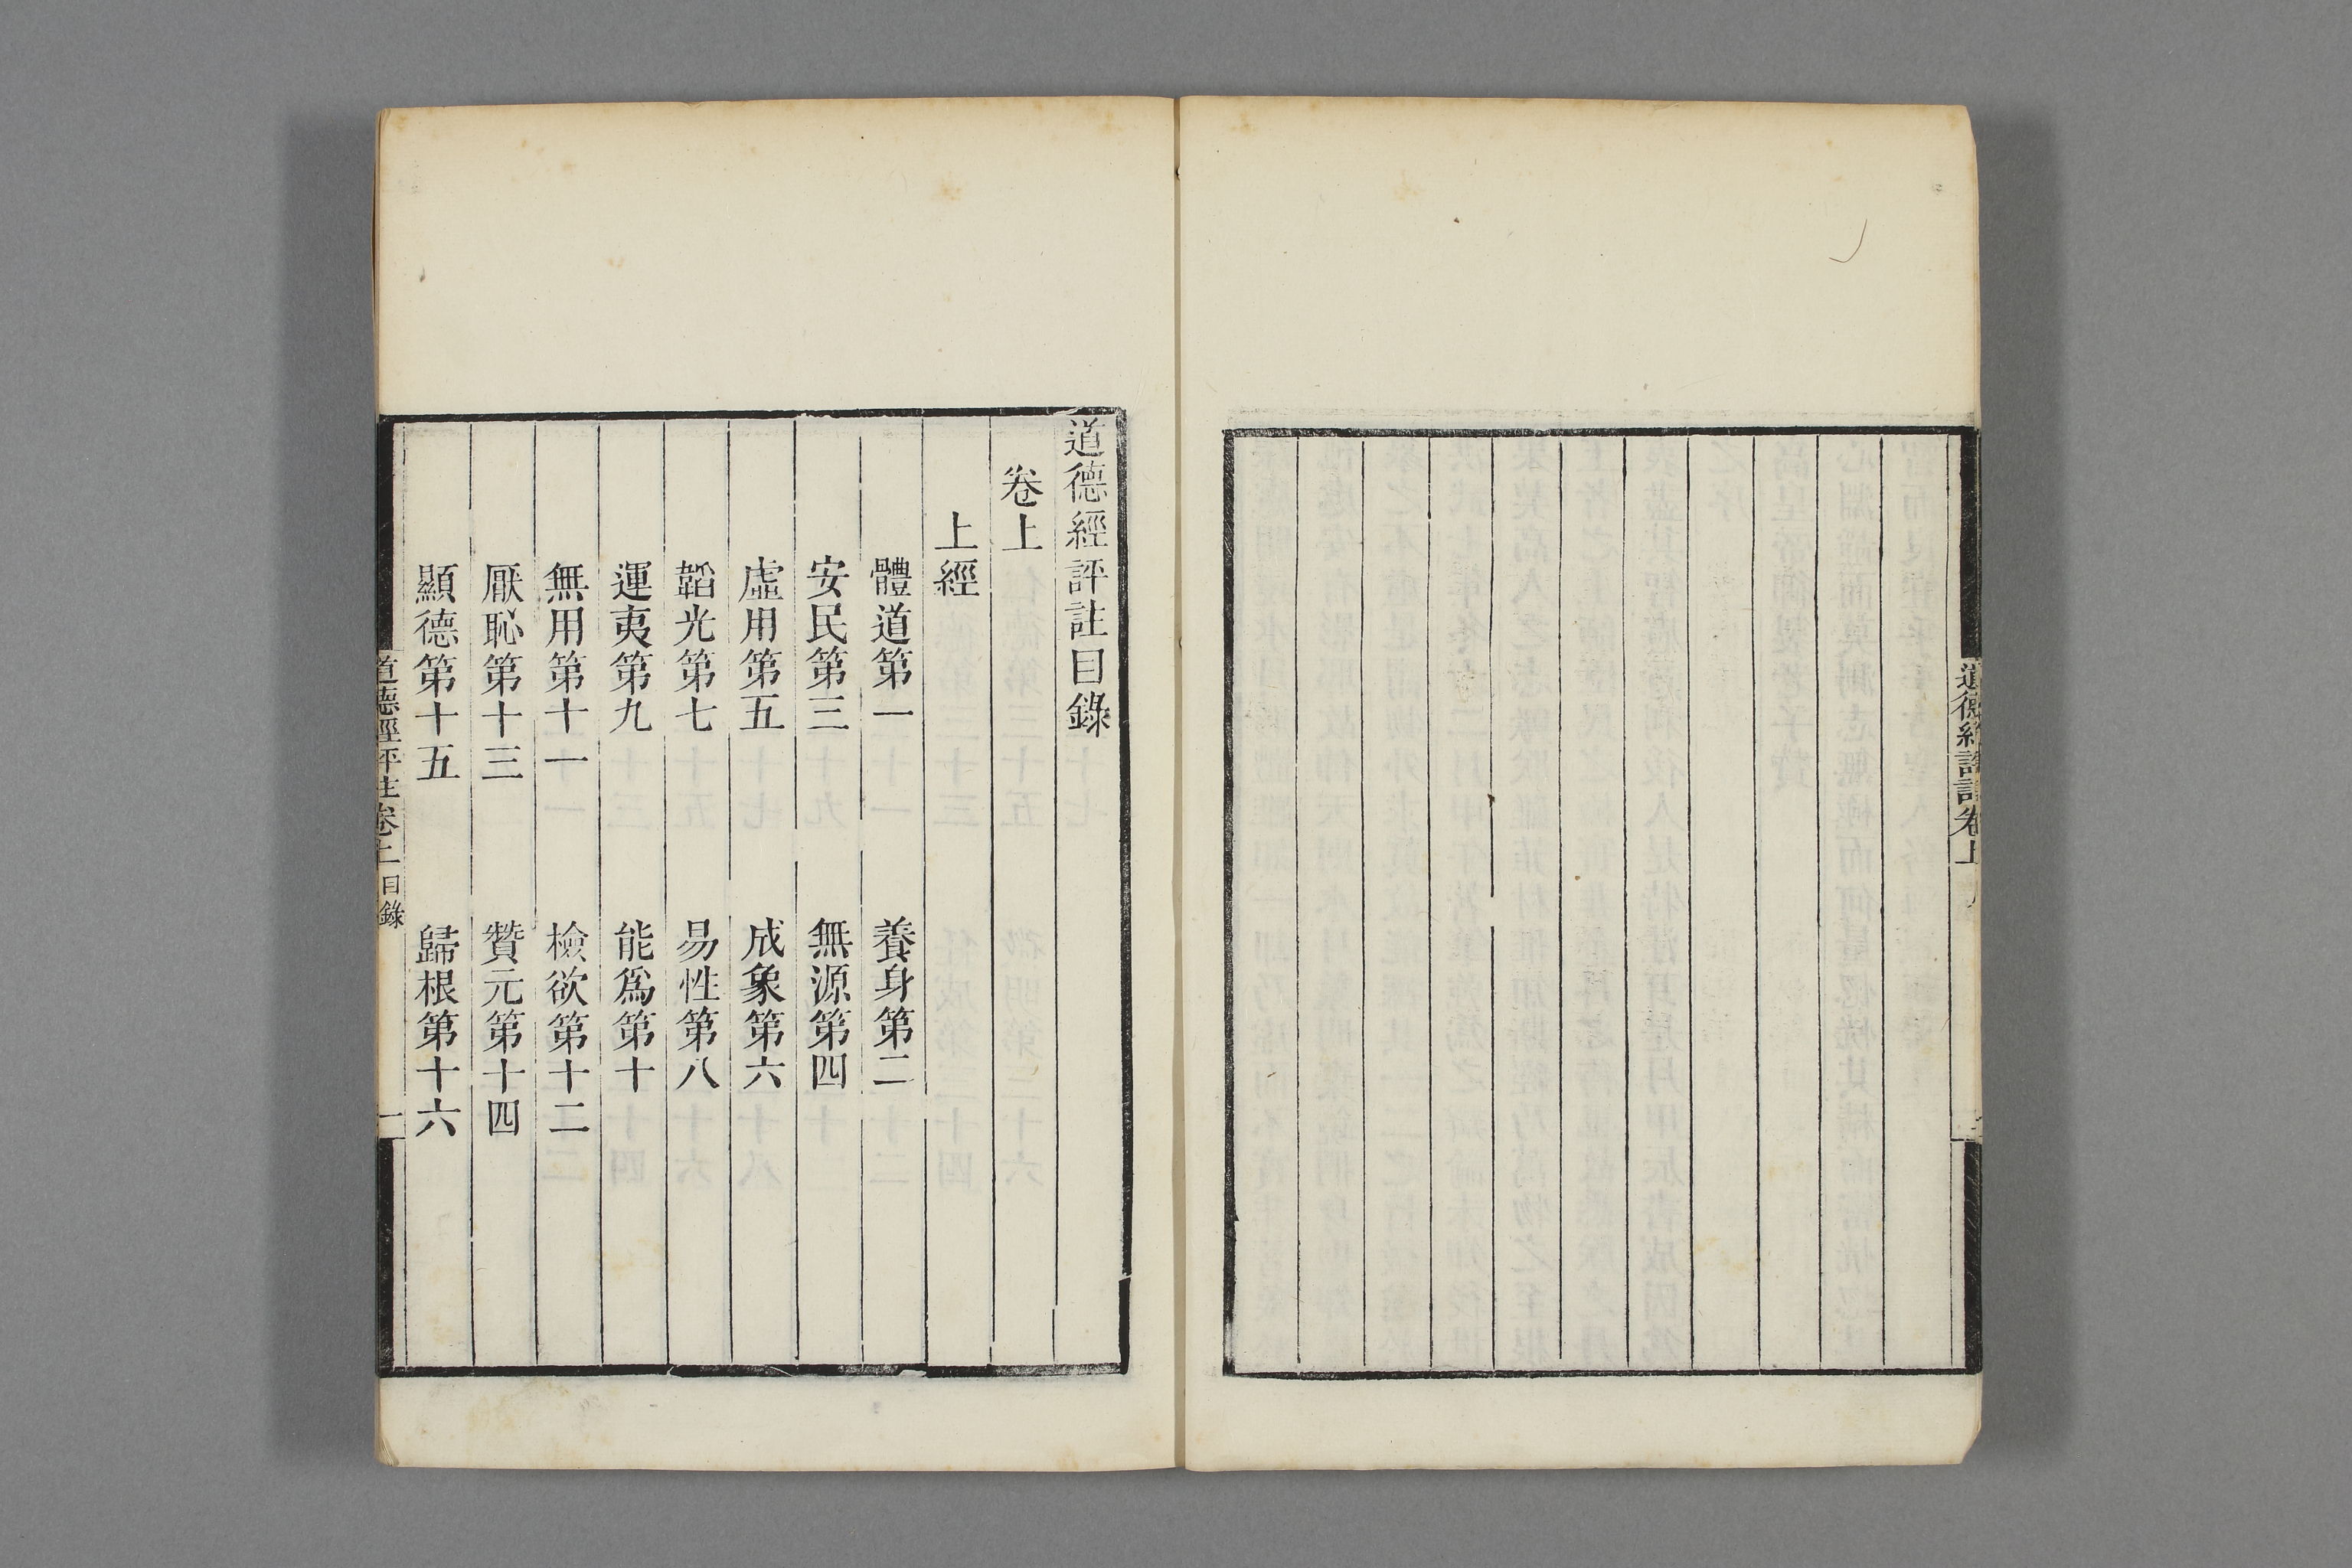 道德經評註卷上
道德經評註目錄
卷上
上經
體道第一　養身第二
安民第三　無源第四
虛用第五　成象第六
韜光第七　易性第八
運夷第九　能爲第十
無用第十一　檢欲第十二
厭恥第十三　贊元第十四
顯德第十五　歸根第十六
道德經評註卷上目錄　一